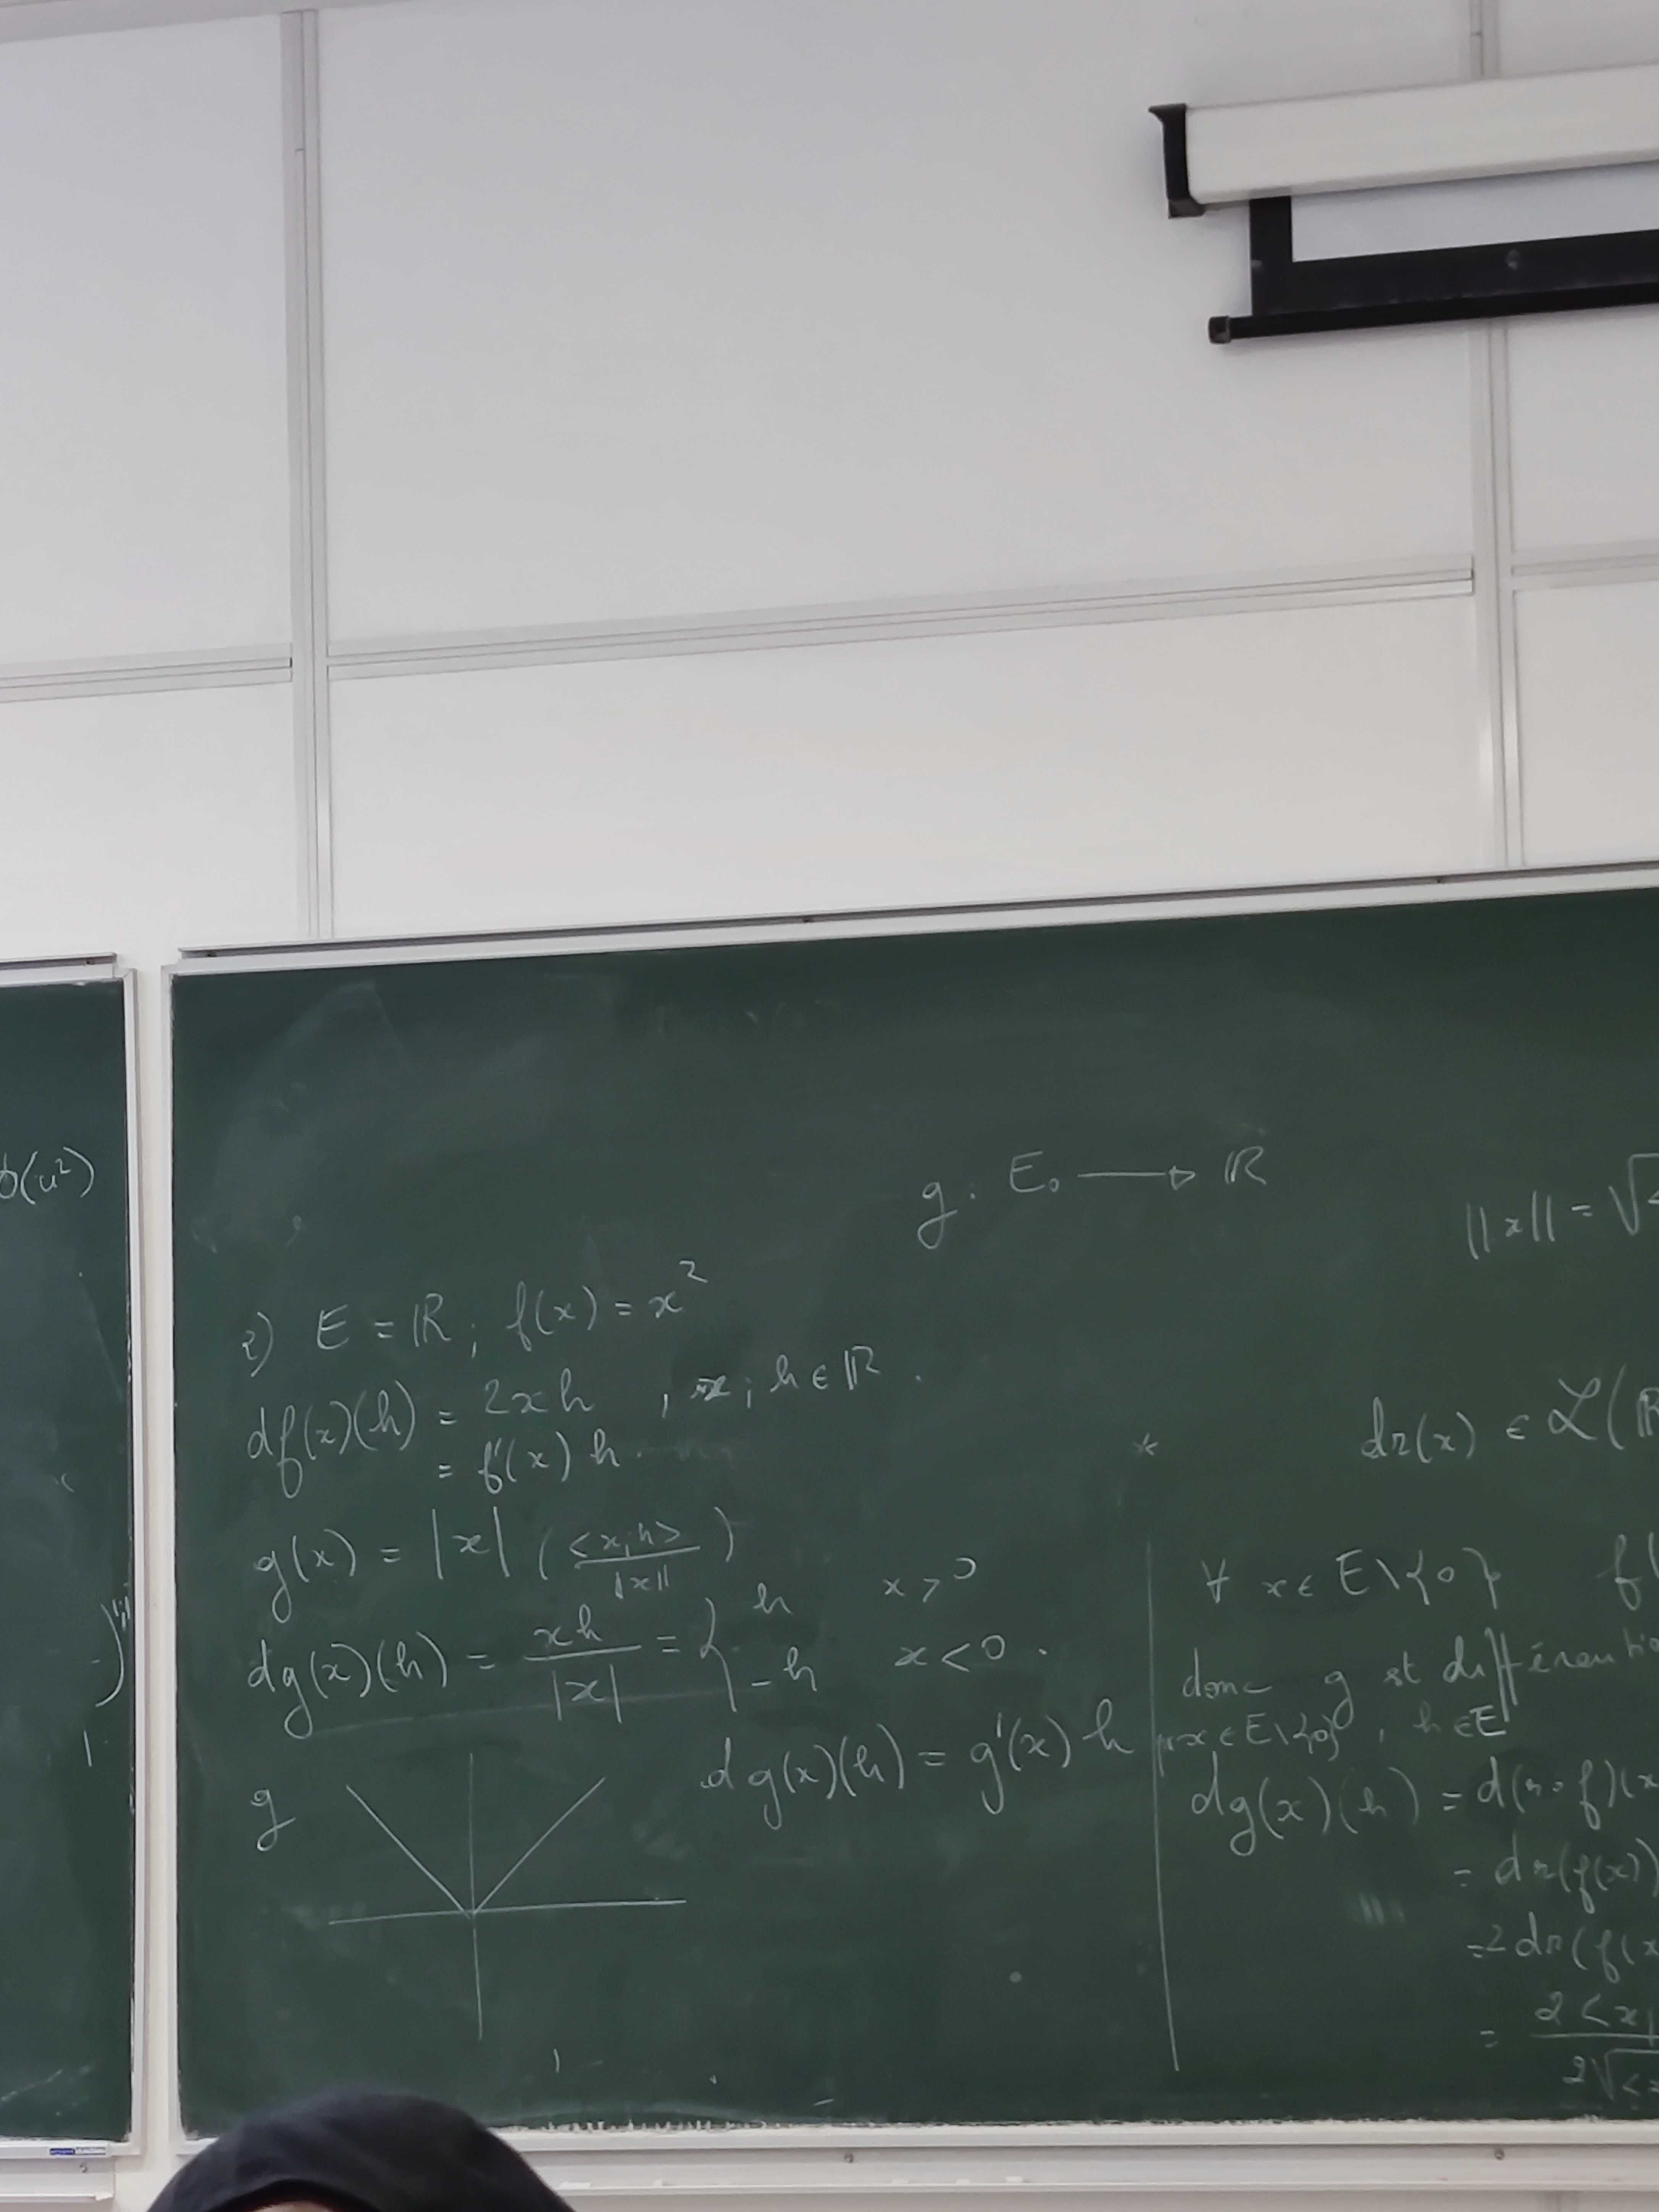 (u²)
g : E₀ → ℝ
||x|| = √<
i) E = ℝ ; f(x) = x²
df(x)(h) = 2xh , x ; h ∈ ℝ .
= f'(x) h .
g(x) = |x| ( <x,h> / ||x|| )
dg(x)(h) = xh / |x| = { h x > 0
- h x < 0 .
dg(x)(h) = g'(x) h
g
*
dr(x) ∈ ℒ(ℝ
∀ x ∈ E\{0} f(
donc g est différentia
x ∈ E\{0} , h ∈ E
dg(x)(h) = d(r∘f)(x
= dr(f(x))
= 2 dr(f(x
= 2 <x,
2√<x